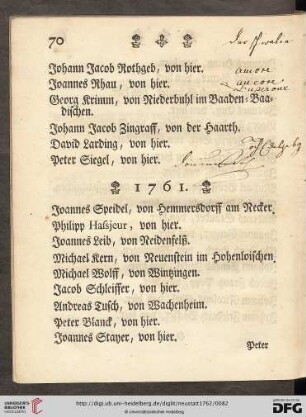 70
Johann Jacob Rothgeb, von hier.
Joannes Rhau, von hier.
Georg Krimm, von Niederbuhl im Baaden-Baa-
dischen.
Johann Jacob Zingraff, von der Haarth.
David Larding, von hier.
Peter Siegel, von hier.
amore
ancora
1761.
Joannes Speidel, von Hemmersdorff am Necker.
Philipp Haßjeur, von hier.
Joannes Leib, von Neidenfelß.
Michael Kern, von Neuenstein im Hohenloischen.
Michael Wolff, von Wintzingen.
Jacob Schleiffer, von hier.
Andreas Tusch, von Wachenheim.
Peter Blanck, von hier.
Joannes Stayer, von hier.
Peter
UNIVERSITÄTS-
BIBLIOTHEK
HEIDELBERG
http://digi.ub.uni-heidelberg.de/diglit/neustatt1762/0082
© Universitätsbibliothek Heidelberg
gefördert durch
DFG